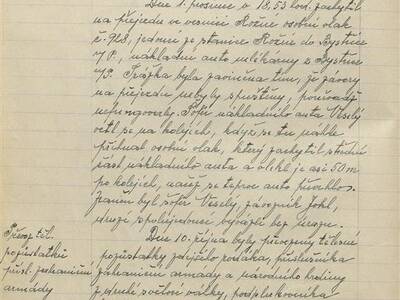 Dne 1. prosince v 18,53 hod. zachytil
na přejezdu ve vesnici Rožné osobní vlak
č. 918, jedoucí ze stanice Rožné do Bystřice
n/P., nákladní auto mlékárny z Bystřice
n/P. Srážka byla zaviněna tím, že závory
na přejezdu nebyly spuštěny, poněvadž
nefungovaly. Šofér nákladního auta Veselý
octl se na kolejích, když se tu náhle
přihnal osobní vlak, který zachytil střední
část nákladního auta a vlekl je asi 50 m
po kolejích, načež se teprve auto převrhlo.
Zraněn byl šofér Veselý, závozník Sokl,
druzí spolujedoucí vyvázli bez úrazu.
Dne 10. října byly převezeny tělesné
pozůstatky zdejšího rodáka, příslušníka
zahraniční armády a národního hrdiny
z druhé světové války, podplukovníka
Převoz těl.
pozůstatků
přísl. zahraniční
armády